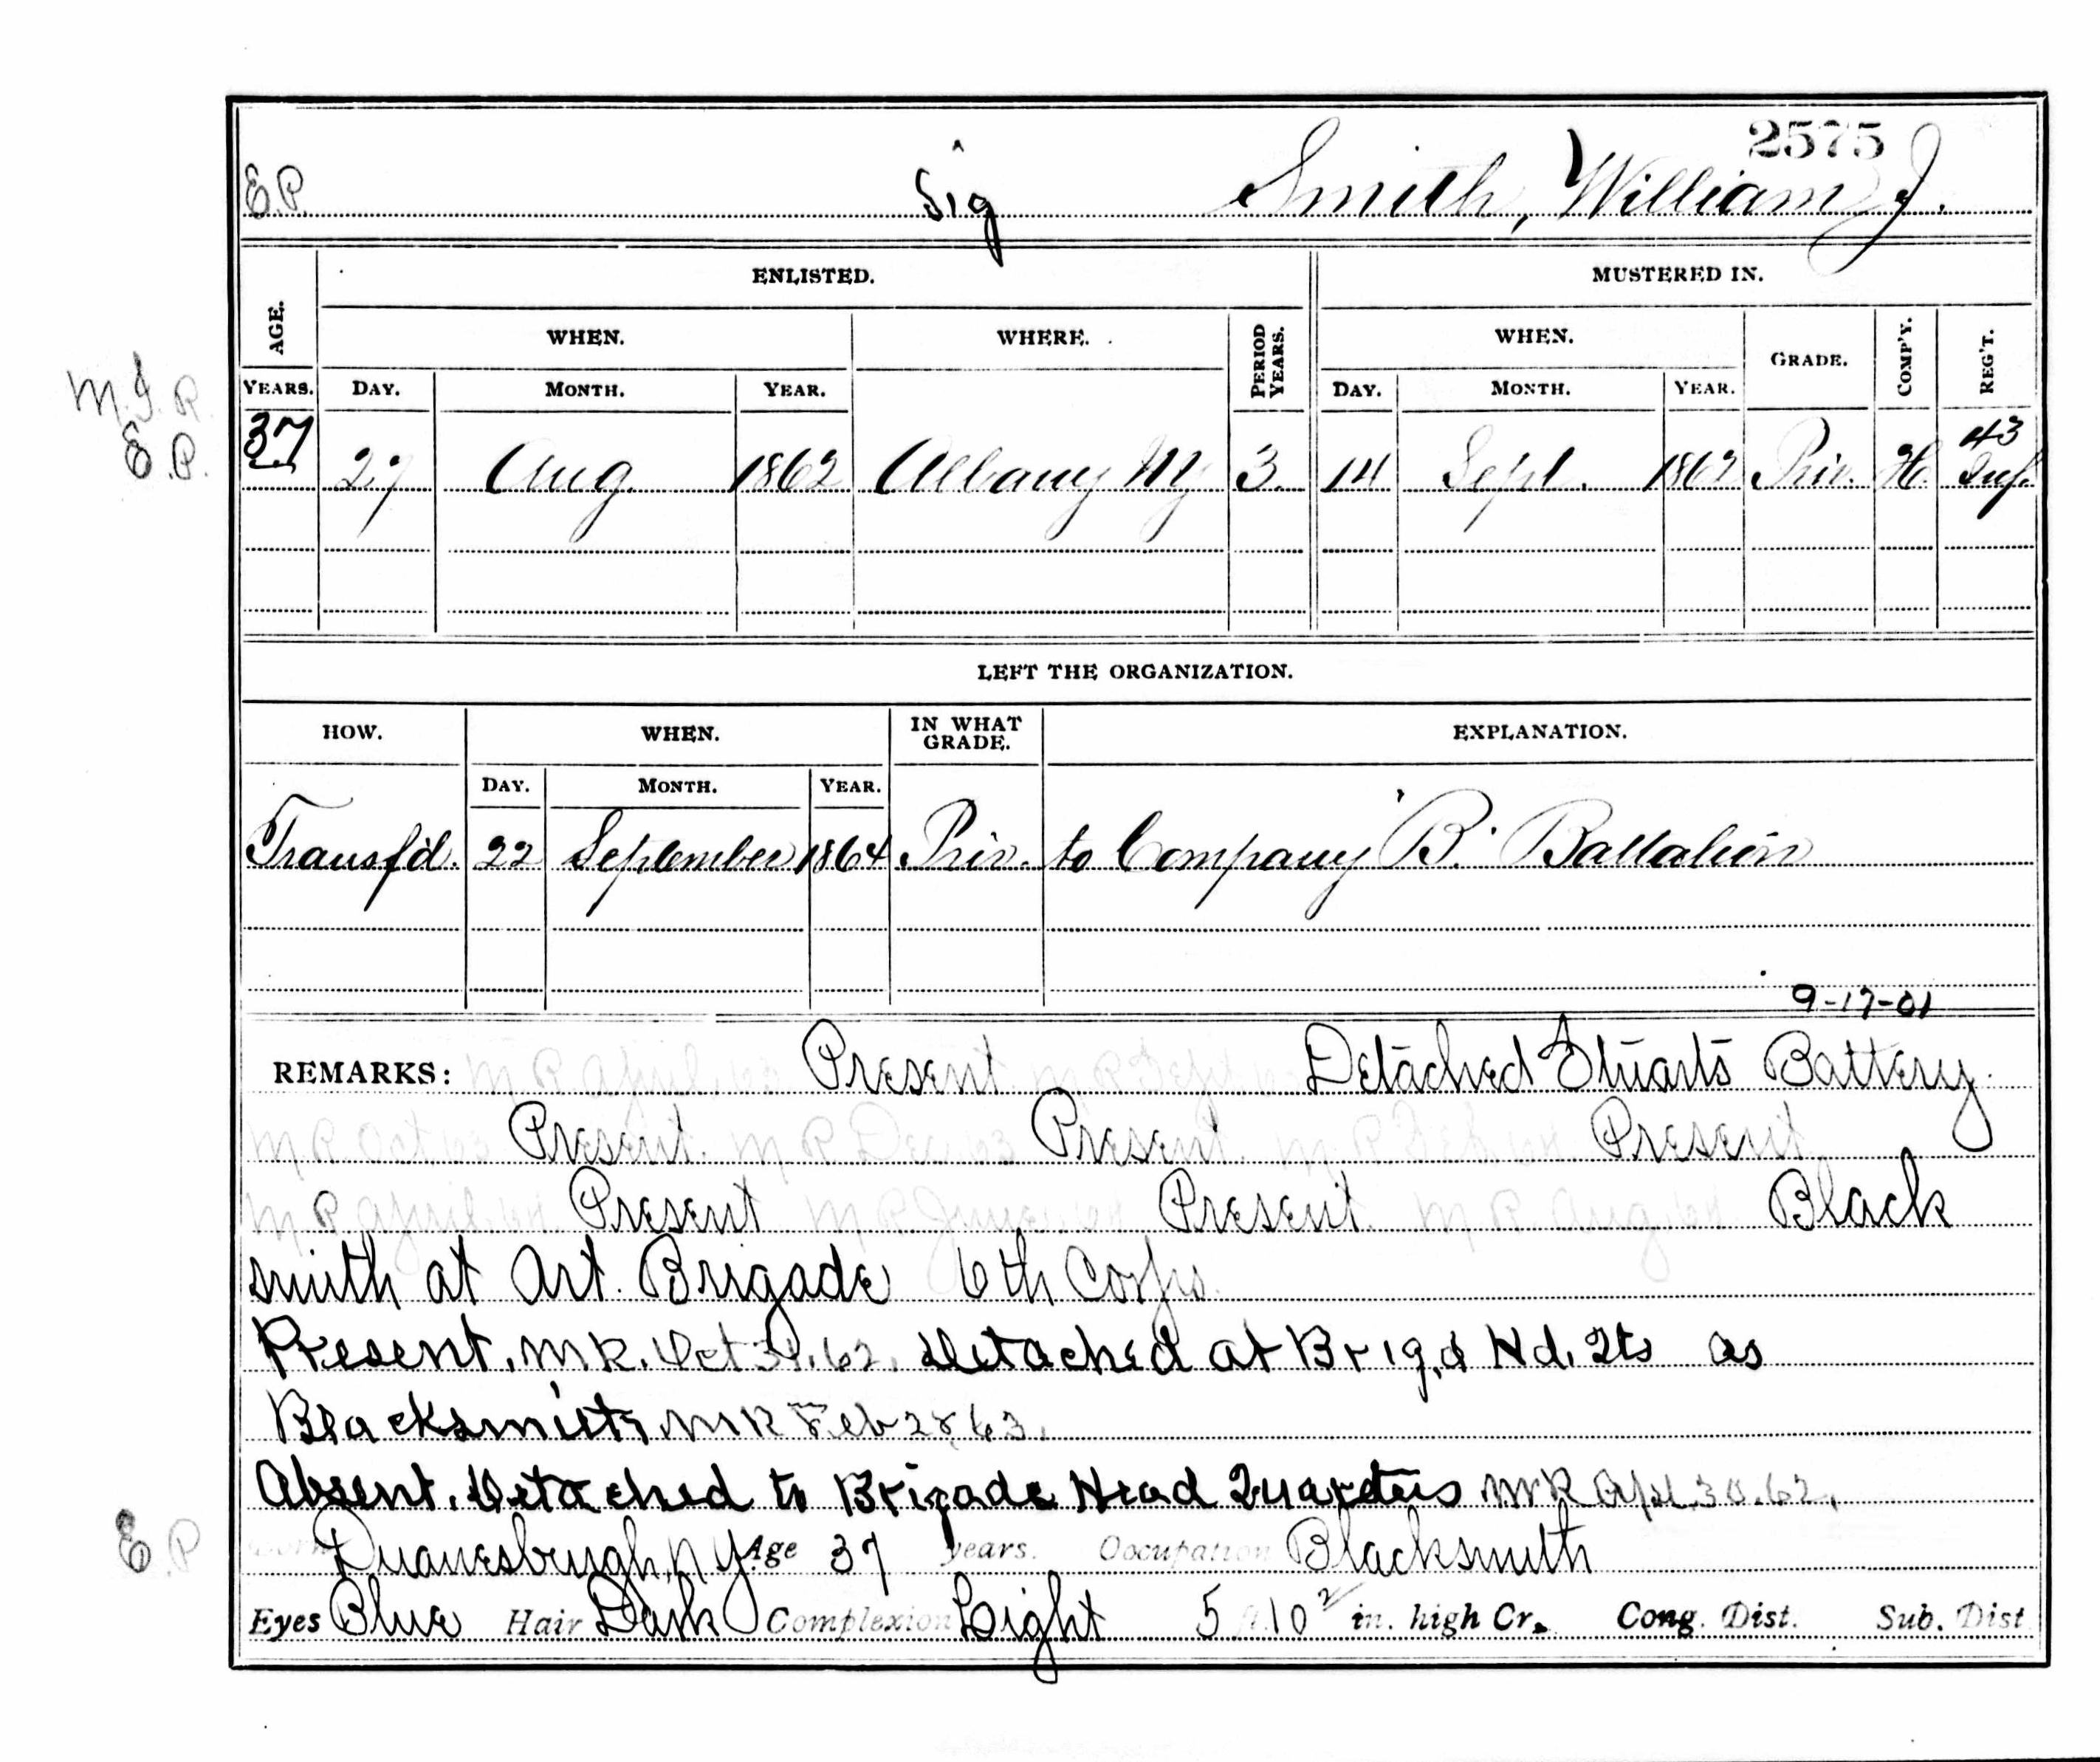 2575
E.P. Sig Smith, William J.
ENLISTED. MUSTERED IN.
AGE. WHEN. WHERE. PERIOD YEARS. WHEN. GRADE. COMP'Y. REG'T.
YEARS. DAY. MONTH. YEAR. DAY. MONTH. YEAR.
M.I.R.
E.P.
37 27 Aug. 1862 Albany NY 3. 14 Sept. 1862 Priv. H. 43 Inf.
LEFT THE ORGANIZATION.
HOW. WHEN. IN WHAT GRADE. EXPLANATION.
DAY. MONTH. YEAR.
Transf'd. 22 September 1864 Priv. to Company "B." Battalion
9-17-01
REMARKS: M R April Present M R Sept Detached Stuarts Battery
M R Oct 63 Present. M R Dec 63 Present. M R Feb 64 Present
M R April 64 Present M R June 64 Present. M R Aug 64 Black
smith at Art. Brigade 6th Corps.
Present. M R. Oct 31. 62. Detached at Brig,d Hd. Qts as
Blacksmith M R Feb 28, 63.
Absent. Detached to Brigade Head Quarters M R Apl. 30. 62.
E.P. Born Duanesburgh, N Y Age 37 years. Occupation Blacksmith
Eyes Blue Hair Dark Complexion Light 5 ft. 10 2/ in. high Cr. Cong. Dist. Sub. Dist